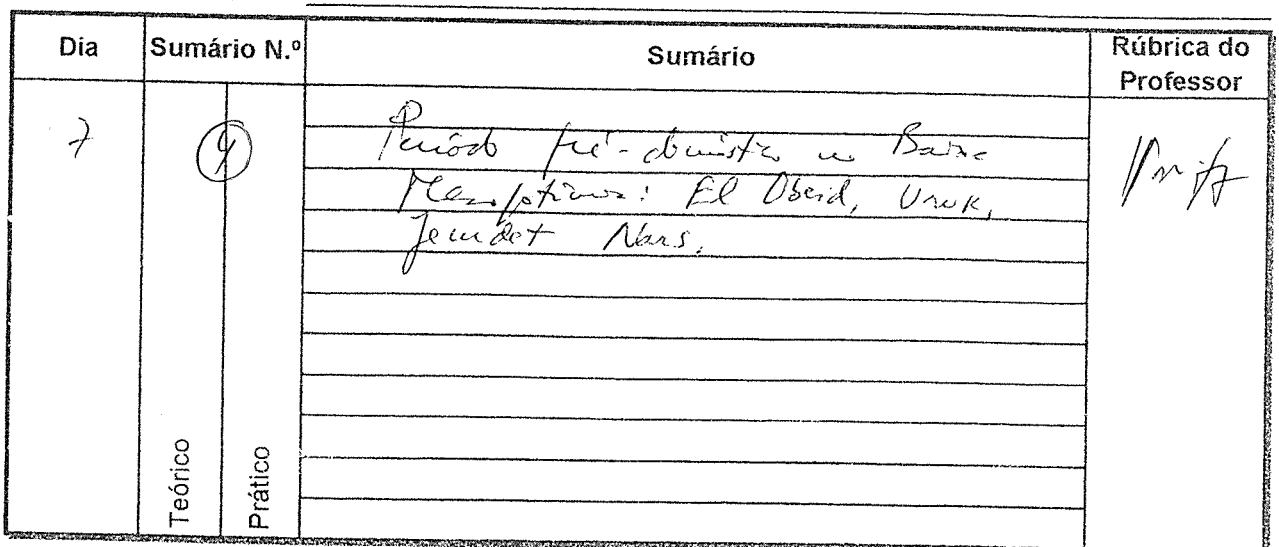 Dia Sumário N.º Sumário Rúbrica do Professor
7
Período pré-dinástico na Baixa
Mesopotâmia: El Obeid, Uruk,
Jemdet Nars.
Teórico
Prático